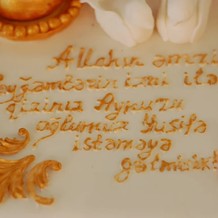 Allahın əmri
peyğəmbərin izni ilə
qızınız Aynuru
oğlumuz Yusifə
istəməyə
gəlmişik!